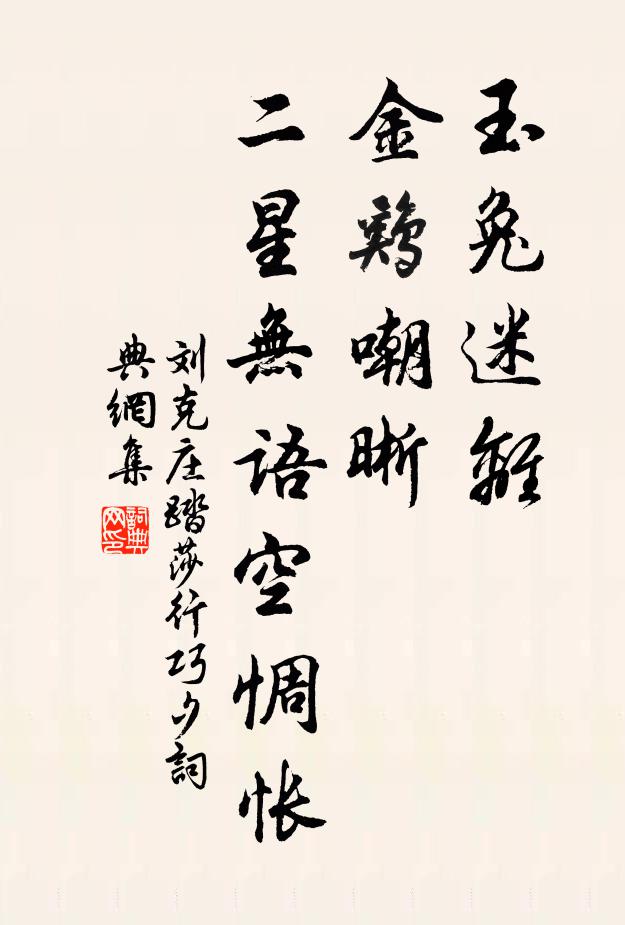 玉兔迷離
金鷄嘲哳
二星無語空惆怅
刘克庄踏莎行巧夕詞
典網集
詞典网印